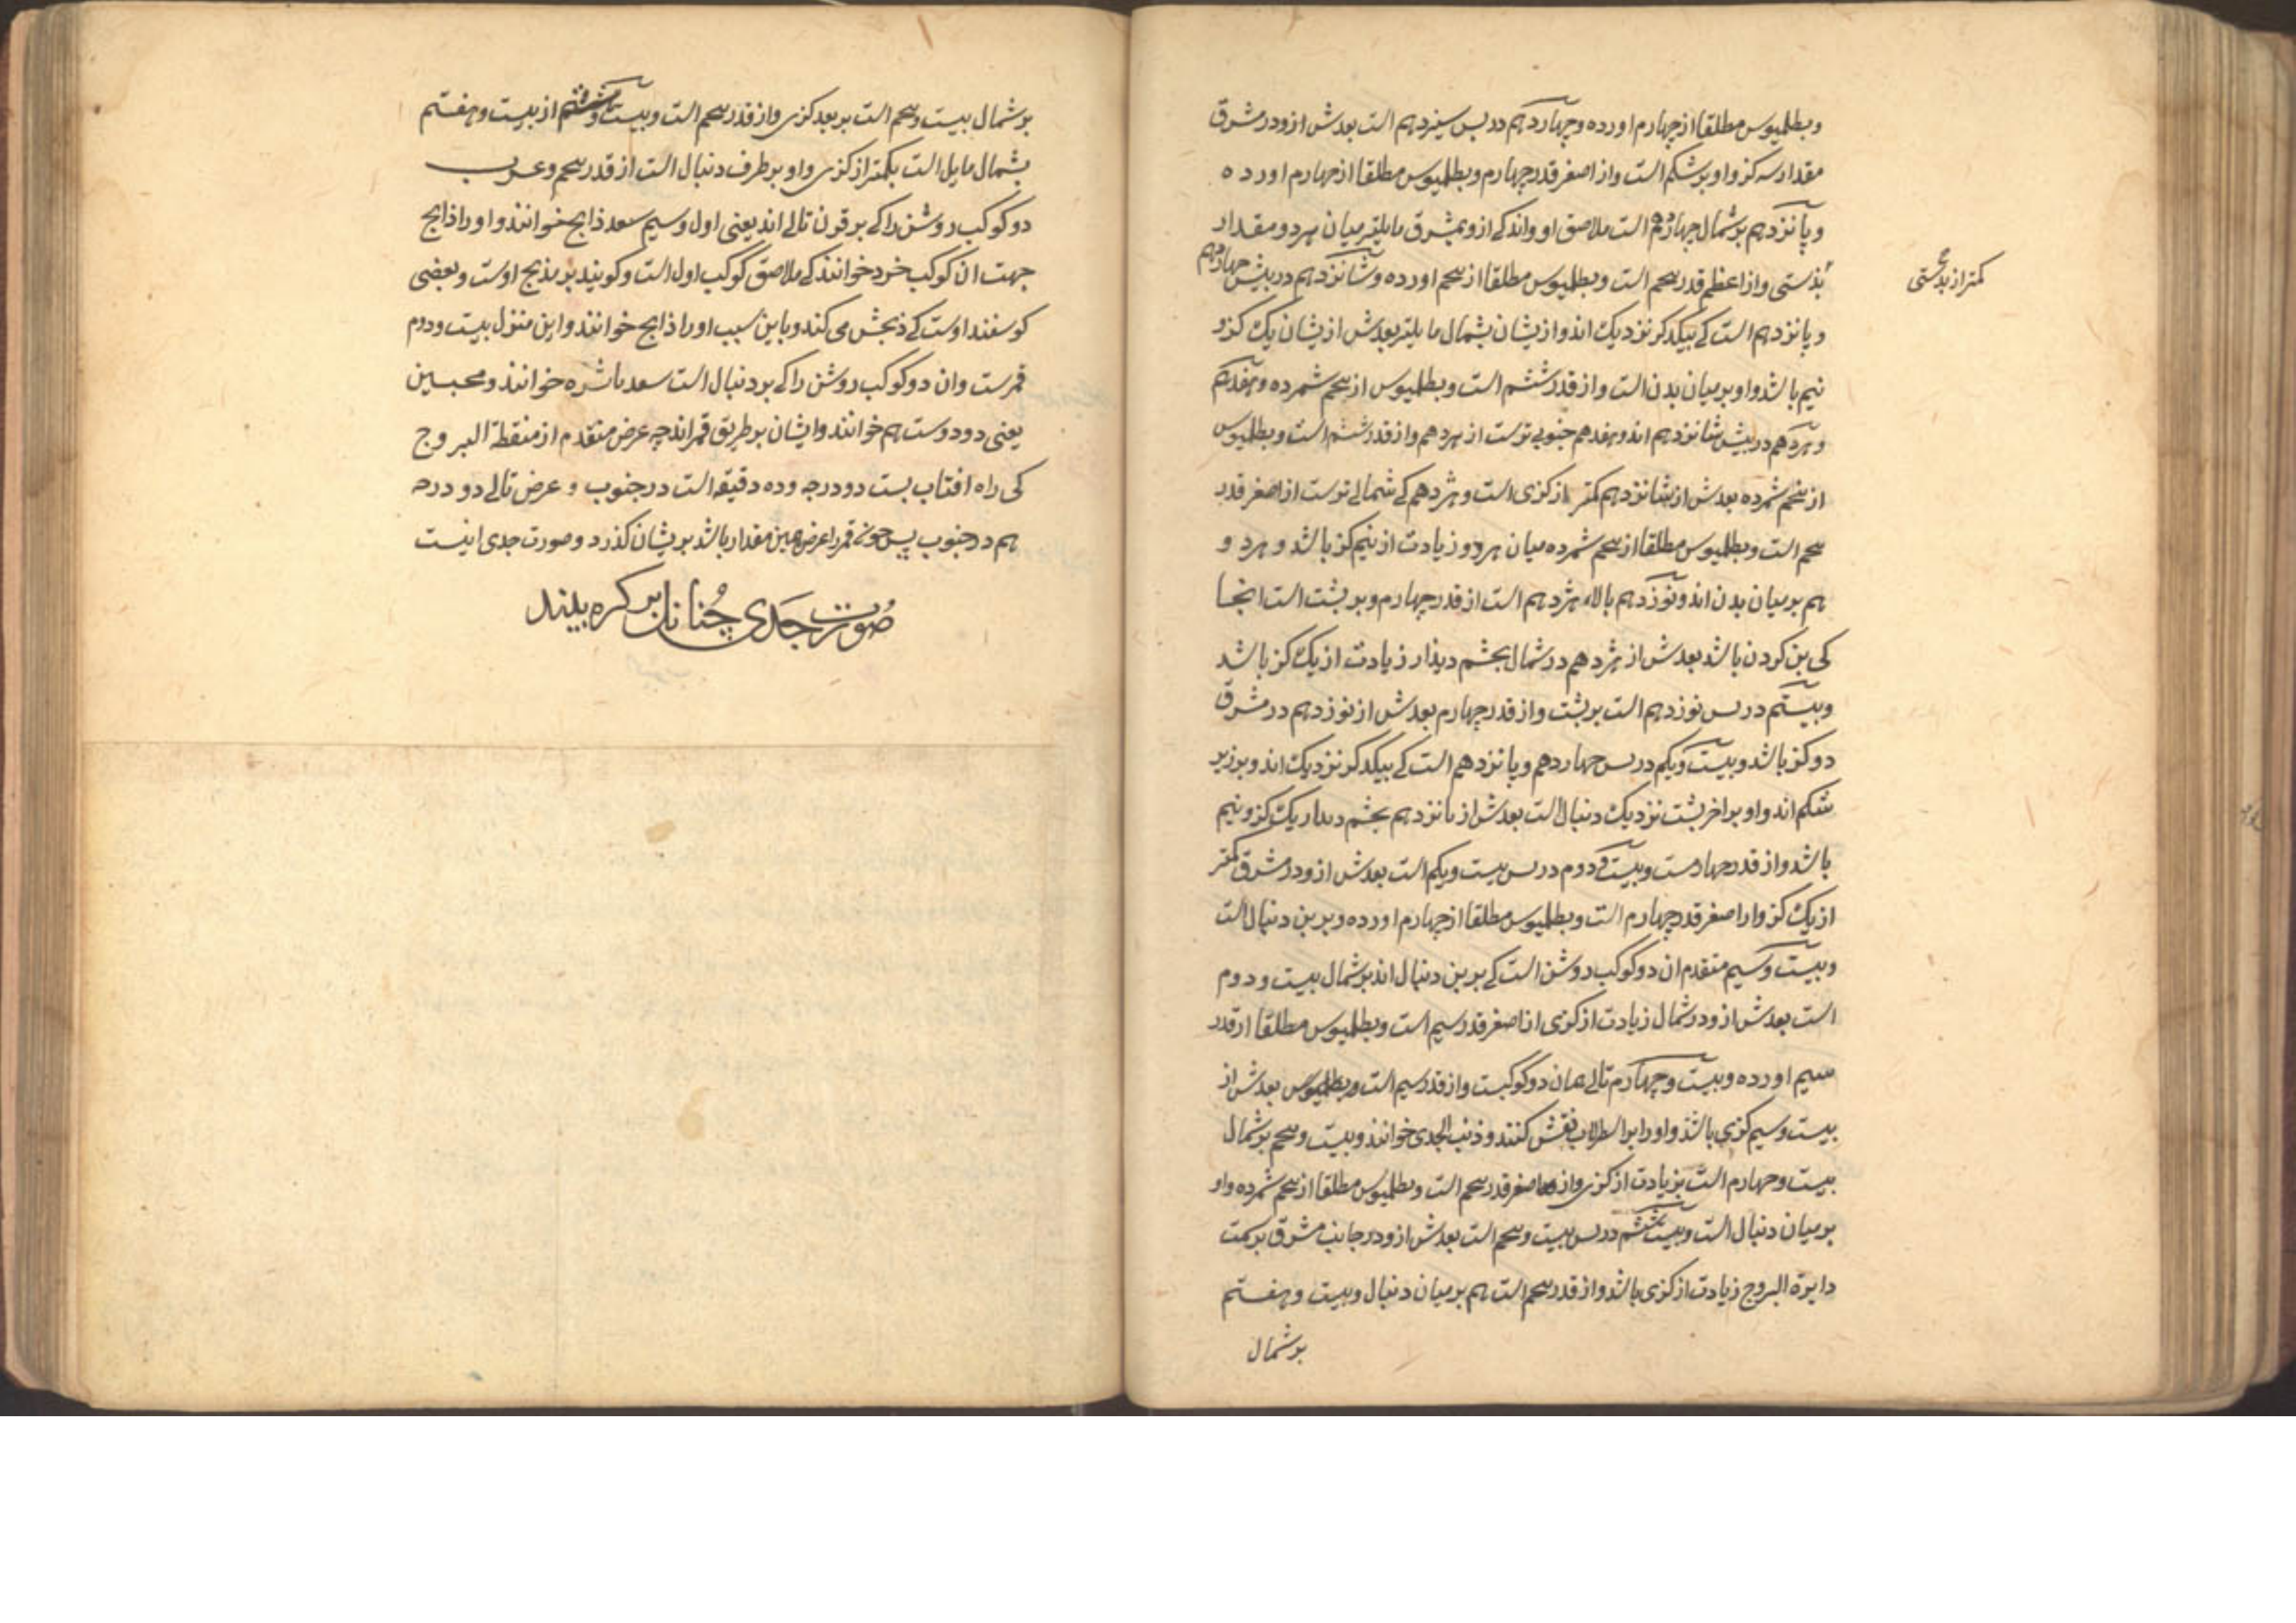 وبطلمیوس مطلقا از چهارم اورده وچهاردهم در پس سیزدهم است بعدش ازو در مشرق
مقدار سه کز واو بر شکم است واز اصغر قدر چهارم وبطلمیوس مطلقا از چهارم اورده
وپانزدهم بر شمال چهاردهم است ملاصق او واندکے ازو بمشرق مایلتر میان هر دو مقدار
بذستی واز اعظم قدر پنجم است وبطلمیوس مطلقا از پنجم اورده وشانزدهم در پیش چهاردهم
کمتر از بذستی
وپانزدهم است کے بیکدکر نزدیک اند واز یشان بشمال مایلتر بعدش از یشان یک کز و
نیم باشد واو بر میان بدن است واز قدر ششم است وبطلمیوس از پنجم شمرده وهفدهم
وهژدهم در پیش شانزدهم اند وهفدهم جنوبے ترست از هژدهم واز قدر ششم است وبطلمیوس
از پنجم شمرده بعدش از شانزدهم کمتر از کزی است وهژدهم کے شمالے ترست از اصغر قدر
پنجم است وبطلمیوس مطلقا از پنجم شمرده میان هر دو زیادت از نیم کز باشد وهر دو
هم بر میان بدن اند ونوزدهم بالاء هژدهم است از قدر چهارم وبر پشت است انجا
کی بن کردن باشد بعدش از هژدهم در شمال بچشم دیذار زیادت از یک کز باشد
وبیستم در پس نوزدهم است بر پشت واز قدر چهارم بعدش از نوزدهم در مشرق
دو کز باشد وبیست ویکم در پس چهاردهم وپانزدهم است کے بیکدکر نزدیک اند وبر زیر
شکم اند واو بر اخر پشت نزدیک دنبال است بعدش از پانزدهم بچشم دیدار یک کز ونیم
باشد واز قدر چهارمست وبیست و دوم در پس بیست ویکم است بعدش ازو در مشرق کمتر
از یک کز واز اصغر قدر چهارم است وبطلمیوس مطلقا از چهارم اورده وبر بن دنبال است
وبیست وسیم متقدم ان دو کوکب روشن است کے بر بن دنبال اند بر شمال بیست ودوم
است بعدش ازو در شمال زیادت از کزی از اصغر قدر سیم است وبطلمیوس مطلقا از قدر
سیم اورده وبیست وچهارم تالے همان دو کوکبست واز قدر سیم است وبطلمیوس بعدش از
بیست وسیم کزی باشد واو را بر اسطرلاب نقش کنند وذنب الجدی خوانند وبیست وپنجم بر شمال
بیست وچهارم است بزیادت از کزی واز اصغر قدر پنجم است وبطلمیوس مطلقا از پنجم شمرده واو
بر میان دنبال است وبیست وششم در پس بیست وپنجم است بعدش ازو در جانب مشرق بر سمت
دایرة البروج زیادت از کزی باشد واز قدر پنجم است هم بر میان دنبال وبیست وهفتم
بر شمال
بر شمال بیست وپنجم است بر بعد کزی واز قدر پنجم است وبیست وهشتم از بیست وهفتم
بشمال مایل است بکمتر از کزی واو بر طرف دنبال است از قدر پنجم وعرب
دو کوکب روشن را کے بر قرن تالے اند یعنی اول وسیم سعد ذابح خوانند واو را ذابح
جهت ان کوکب خرد خوانند کے ملاصق کوکب اول است وکویند بر مذبح اوست وبعضی
کوسفند اوست کے ذبحش می کند وباین سبب او را ذابح خوانند واین منزل بیست ودوم
قمرست وان دو کوکب روشن را کے بر دنبال است سعد ناشره خوانند ومحبین
یعنی دو دوست هم خوانند وایشان بر طریق قمر اند چه عرض متقدم از منطقة البروج
کی راه افتاب بست دو درجه وده دقیقه است در جنوب و عرض تالے دو درجه
هم در جنوب پس چون قمر را عرض همین مقدار باشد بریشان کذرد وصورت جدی اینست
صورت جدی چنانان بر کره بیند